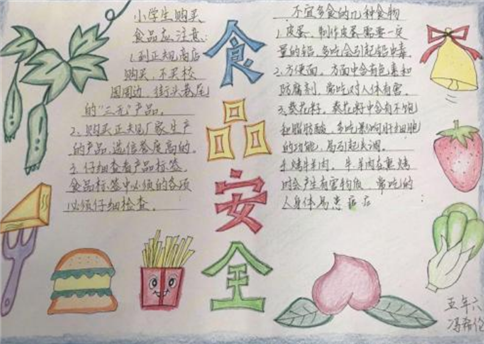 小学生购买
食品应注意:
1.到正规商店
购买,不买校
园周边、街头巷尾
的“三无”产品。
2.购买正规厂家生产
的产品,选信誉度高的
3.仔细查看产品标签。
食品标签中必须的各项
必须仔细检查。
食品安全
不宜多食的几种食物
1.皮蛋,制作皮蛋需要一定
量的铅,多吃会引起铅中毒。
2.方便面。方面中含有色素和
防腐剂,常吃对人体有害。
3.葵花籽。葵花籽中含有不饱
和脂肪酸,多吃影响肝细胞
的功能,易引起
4.烤羊肉。牛、羊肉在熏烤
时会产生有害物质,常吃的
人身体易患
五年六
冯